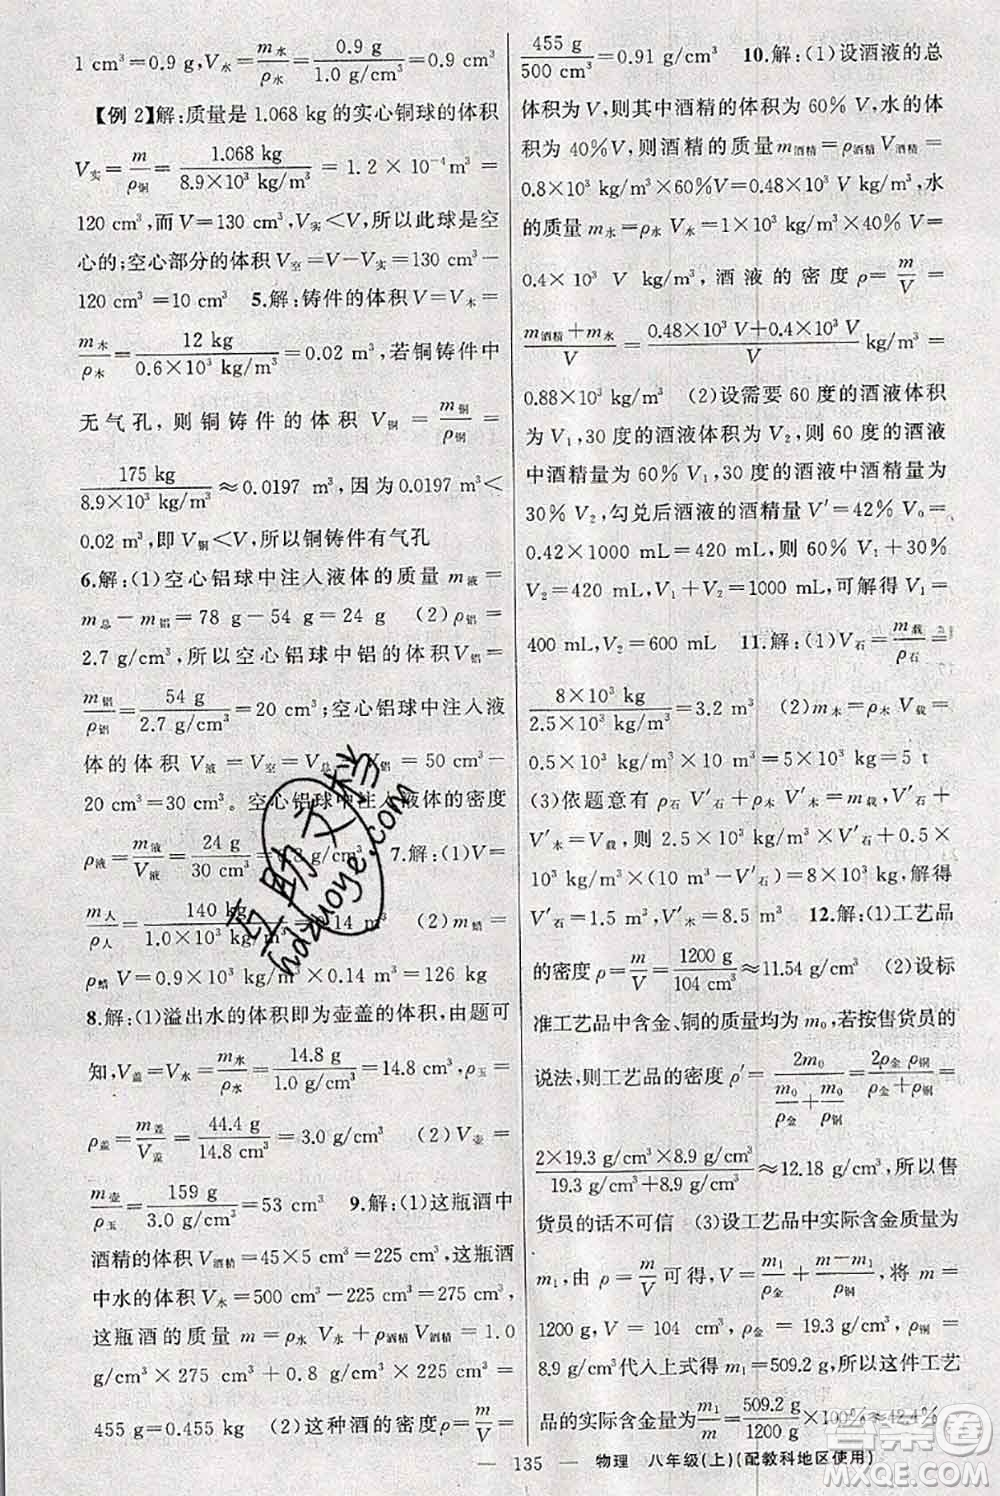 1 cm³=0.9 g, V水=m水/ρ水=0.9 g/1.0 g/cm³=0.9 cm³
【例 2】解:质量是 1.068 kg 的实心铜球的体积
V实=m/ρ铜=1.068 kg/8.9×10³ kg/m³=1.2×10⁻⁴ m³=
120 cm³,而 V=130 cm³,V实<V,所以此球是空
心的;空心部分的体积 V空=V-V实=130 cm³-
120 cm³=10 cm³ 5.解:铸件的体积 V=V木=
m木/ρ木=12 kg/0.6×10³ kg/m³=0.02 m³,若铜铸件中
无气孔,则铜铸件的体积 V铜=m铜/ρ铜=
175 kg/8.9×10³ kg/m³≈0.0197 m³,因为0.0197 m³<
0.02 m³,即 V铜<V,所以铜铸件有气孔
6.解:(1)空心铝球中注人液体的质量 m液=
m总-m铝=78 g-54 g=24 g (2)ρ铝=
2.7 g/cm³,所以空心铝球中铝的体积V铝=
m铝/ρ铝=54 g/2.7 g/cm³=20 cm³;空心铝球中注入液
体的体积 V液=V空=V总-V铝=50 cm³-
20 cm³=30 cm³。空心铝球中注入液体的密度
ρ液=m液/V液=24 g/30 cm³=0.8 g/cm³ 7.解:(1)V=
m人/ρ人=140 kg/1.0×10³ kg/m³=0.14 m³ (2)m蜡=
ρ蜡 V=0.9×10³ kg/m³×0.14 m³=126 kg
8.解:(1)溢出水的体积即为壶盖的体积,由题可
知,V盖=V水=m水/ρ水=14.8 g/1 g/cm³=14.8 cm³,ρ玉=
ρ盖=m盖/V盖=44.4 g/14.8 cm³=3.0 g/cm³ (2)V壶=
m壶/ρ玉=159 g/3.0 g/cm³=53 cm³ 9.解:(1)这瓶酒中
酒精的体积 V酒精=45×5 cm³=225 cm³,这瓶酒
中水的体积 V水=500 cm³-225 cm³=275 cm³,
这瓶酒的质量 m=ρ水 V水+ρ酒精V酒精=1.0
g/cm³×275 cm³+0.8 g/cm³×225 cm³=
455 g=0.455 kg (2)这种酒的密度ρ=m/V=
455 g/500 cm³=0.91 g/cm³ 10.解:(1)设酒液的总
体积为 V,则其中酒精的体积为 60% V,水的体
积为 40%V,酒精的质量 m酒精=ρ酒精V酒精=
0.8×10³ kg/m³×60%V=0.48×10³ V kg/m³,水
的质量 m水=ρ水 V水=1×10³ kg/m³×40% V=
0.4×10³ V kg/m³,酒液的密度ρ=m/V=
m酒精+m水/V=0.48×10³ V+0.4×10³ V/V kg/m³=
0.88×10³ kg/m³ (2)设需要 60 度的酒液体积
为 V₁,30 度的酒液体积为 V₂,则 60 度的酒液
中酒精量为 60% V₁,30 度的酒液中酒精量为
30% V₂,勾兑后酒液的酒精量 V′=42% V₀=
0.42×1000 mL=420 mL,则 60% V₁+30%
V₂=420 mL,V₁+V₂=1000 mL,可解得 V₁=
400 mL,V₂=600 mL 11.解:(1)V石=m载/ρ石=
8×10³ kg/2.5×10³ kg/m³=3.2 m³ (2)m木=ρ木 V载=
0.5×10³ kg/m³×10 m³=5×10³ kg=5 t
(3)依题意有 ρ石 V′石+ρ木 V′木=m载,V′石+
V′木=V载,则 2.5×10³ kg/m³×V′石+0.5×
10³ kg/m³×(10 m³-V′石)=8×10³ kg,解得
V′石=1.5 m³,V′木=8.5 m³ 12.解:(1)工艺品
的密度 ρ=m/V=1200 g/104 cm³≈11.54 g/cm³ (2)设标
准工艺品中含金、铜的质量均为 m₀,若按售货员的
说法,则工艺品的密度 ρ′=2m₀/(m₀/ρ金+m₀/ρ铜)=2ρ金 ρ铜/ρ金+ρ铜=
2×19.3 g/cm³×8.9 g/cm³/19.3 g/cm³+8.9 g/cm³≈12.18 g/cm³,所以售
货员的话不可信 (3)设工艺品中实际含金质量为
m₁,由 ρ=m/V可得,V=m₁/ρ金+m-m₁/ρ铜,将 m=
1200 g,V=104 cm³,ρ金=19.3 g/cm³,ρ铜=
8.9 g/cm³代入上式得 m₁=509.2 g,所以这件工艺
品的实际含金量为m₁/m=509.2 g/1200 g×100%≈42.4%
— 135 — 物理 八年级(上)(配教科地区使用)
互助文档
hdzuoye.com
MXQE.COM